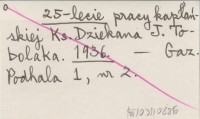 25-lecie pracy kapłań-
skiej Ks. Dziekana J. To-
bolaka. 1936. — Gaz.
Podhala 1, nr 2.